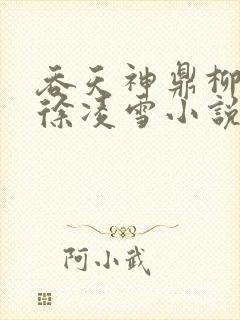 吞天神鼎柳
徐凌雪小説
阿小武